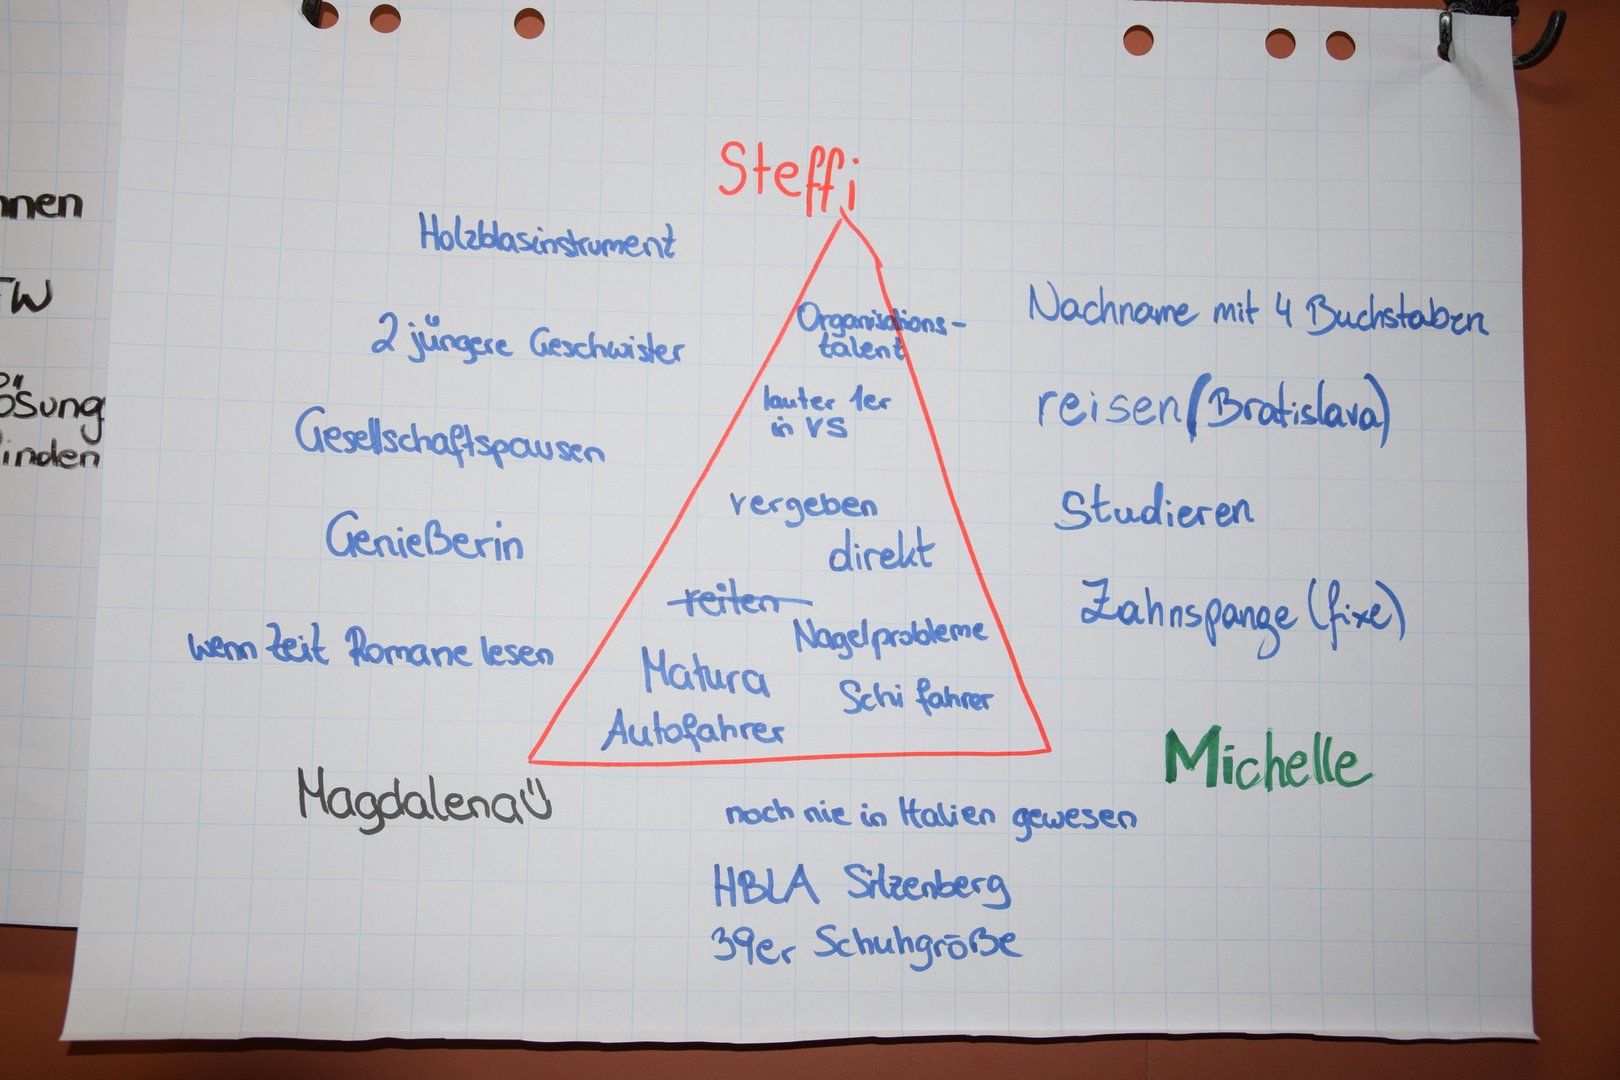 nnen
TW
ösung
inden
Steffi
Holzblasinstrument
2 jüngere Geschwister
Gesellschaftspausen
Genießerin
wenn Zeit Romane lesen
Magdalena
Organisations-
talent
lauter 1er
in VS
vergeben
direkt
reiten
Nagelprobleme
Matura
Schi fahrer
Autofahrer
Nachname mit 4 Buchstaben
reisen (Bratislava)
Studieren
Zahnspange (fixe)
Michelle
noch nie in Italien gewesen
HBLA Sitzenberg
39er Schuhgröße